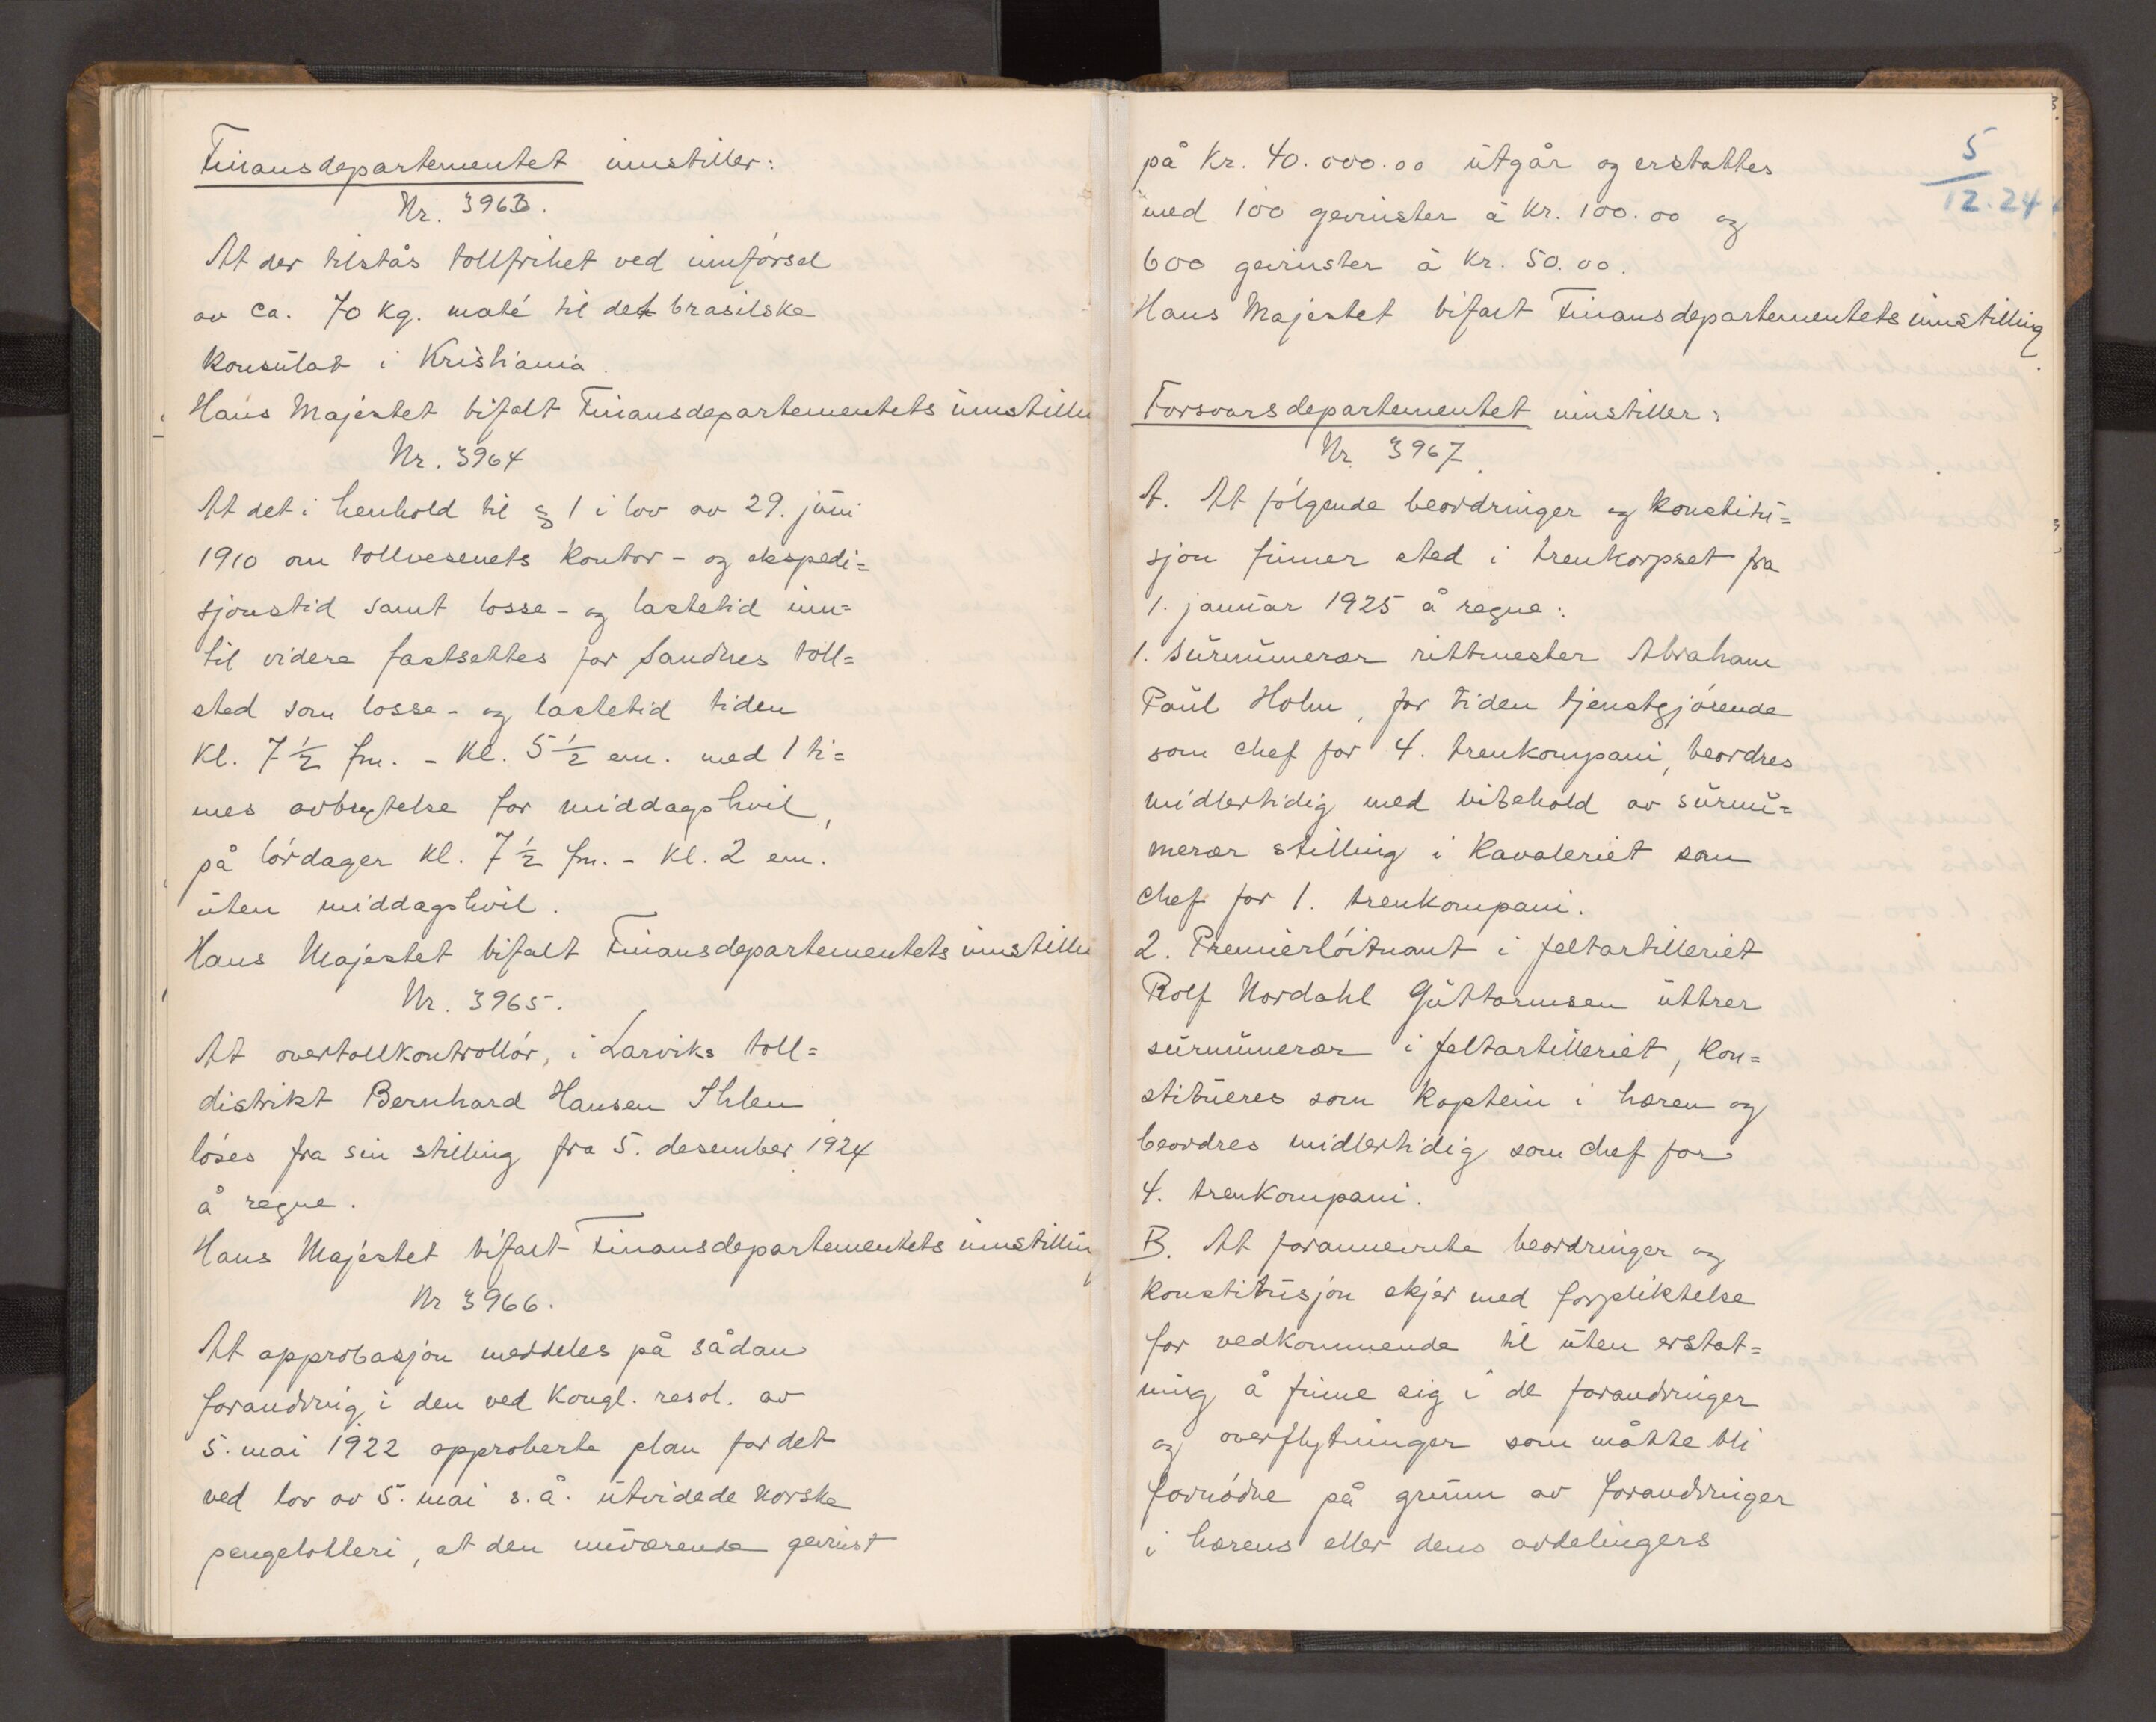 Finansdepartementet innstiller:
Nr. 3963.
At der tilstås tollfrihet ved innførsel
av ca. 70 kg. maté til det brasilske
konsulat i Kristiania.
Hans Majestet bifalt Finansdepartementets innstilln
Nr. 3964
At det i henhold til § 1 i lov av 29. juni
1910 om tollvesenets kontor- og ekspedi=
sjonstid samt losse- og lastetid inn=
til videre fastsettes for Sandnes toll=
sted som losse- og lastetid tiden
kl. 7 ½ fm. - kl. 5 ½ em. med 1 ti=
mes avbrytelse for middagshvil,
på lørdager kl. 7 ½ fm. - kl. 2 em.
uten middagshvil.
Hans Majestet bifalt Finansdepartementets innstilln
Nr. 3965.
At overtollkontrollør, i Larviks toll=
distrikt Bernhard Hansen Ihlen
løses fra sin stilling fra 5. desember 1924
å regne.
Hans Majestet bifalt Finansdepartementets innstilling
Nr 3966.
At approbasjon meddeles på sådan
forandring i den ved kongl. resol. av
5. mai 1922 approberte plan for det
ved lov av 5. mai s.å. utvidede norske
pengelotteri, at den nuværende gevinst
på kr. 40.000.00 utgår og erstattes
med 100 gevinster à kr. 100.00 og
600 gevinster à kr. 50.00.
Hans Majestet bifalt Finansdepartementets innstilling.
5
12.24
Forsvarsdepartementet innstiller:
Nr 3967.
A. At følgende beordringer og konstitu=
sjon finner sted i trenkorpset fra
1. januar 1925 å regne:
1. Surnumerær rittmester Abraham
Paul Holm, for tiden tjenstgjørende
som chef for 4. trenkompani, beordres
midlertidig med bibehold av surnu=
merær stilling i kavaleriet som
chef for 1. trenkompani.
2. Premierløitnant i feltartilleriet
Rolf Nordahl Guttormsen uttrer
surnumerær i feltartilleriet, kon=
stitueres som kaptein i hæren og
beordres midlertidig som chef for
4. trenkompani.
B. At forannevnte beordringer og
konstitusjon skjer med forpliktelse
for vedkommende til uten erstat=
ning å finne sig i de forandringer
og overflytninger som måtte bli
fornødne på grunn av forandringer
i hærens eller dens avdelingers